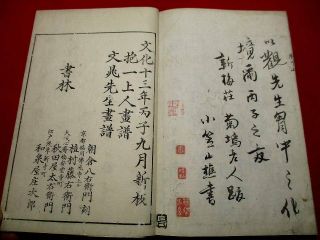 以觀先生胷中之化
境爾丙子之夜
新梅荘菊塢老人跋
小笠山樵書
文化十三年丙子九月新板
抱一上人畫譜
文兆先生畫譜
書林
朝倉八右衛門刻
植村藤右衛門
秋田屋太右衛門
和泉屋庄次郎